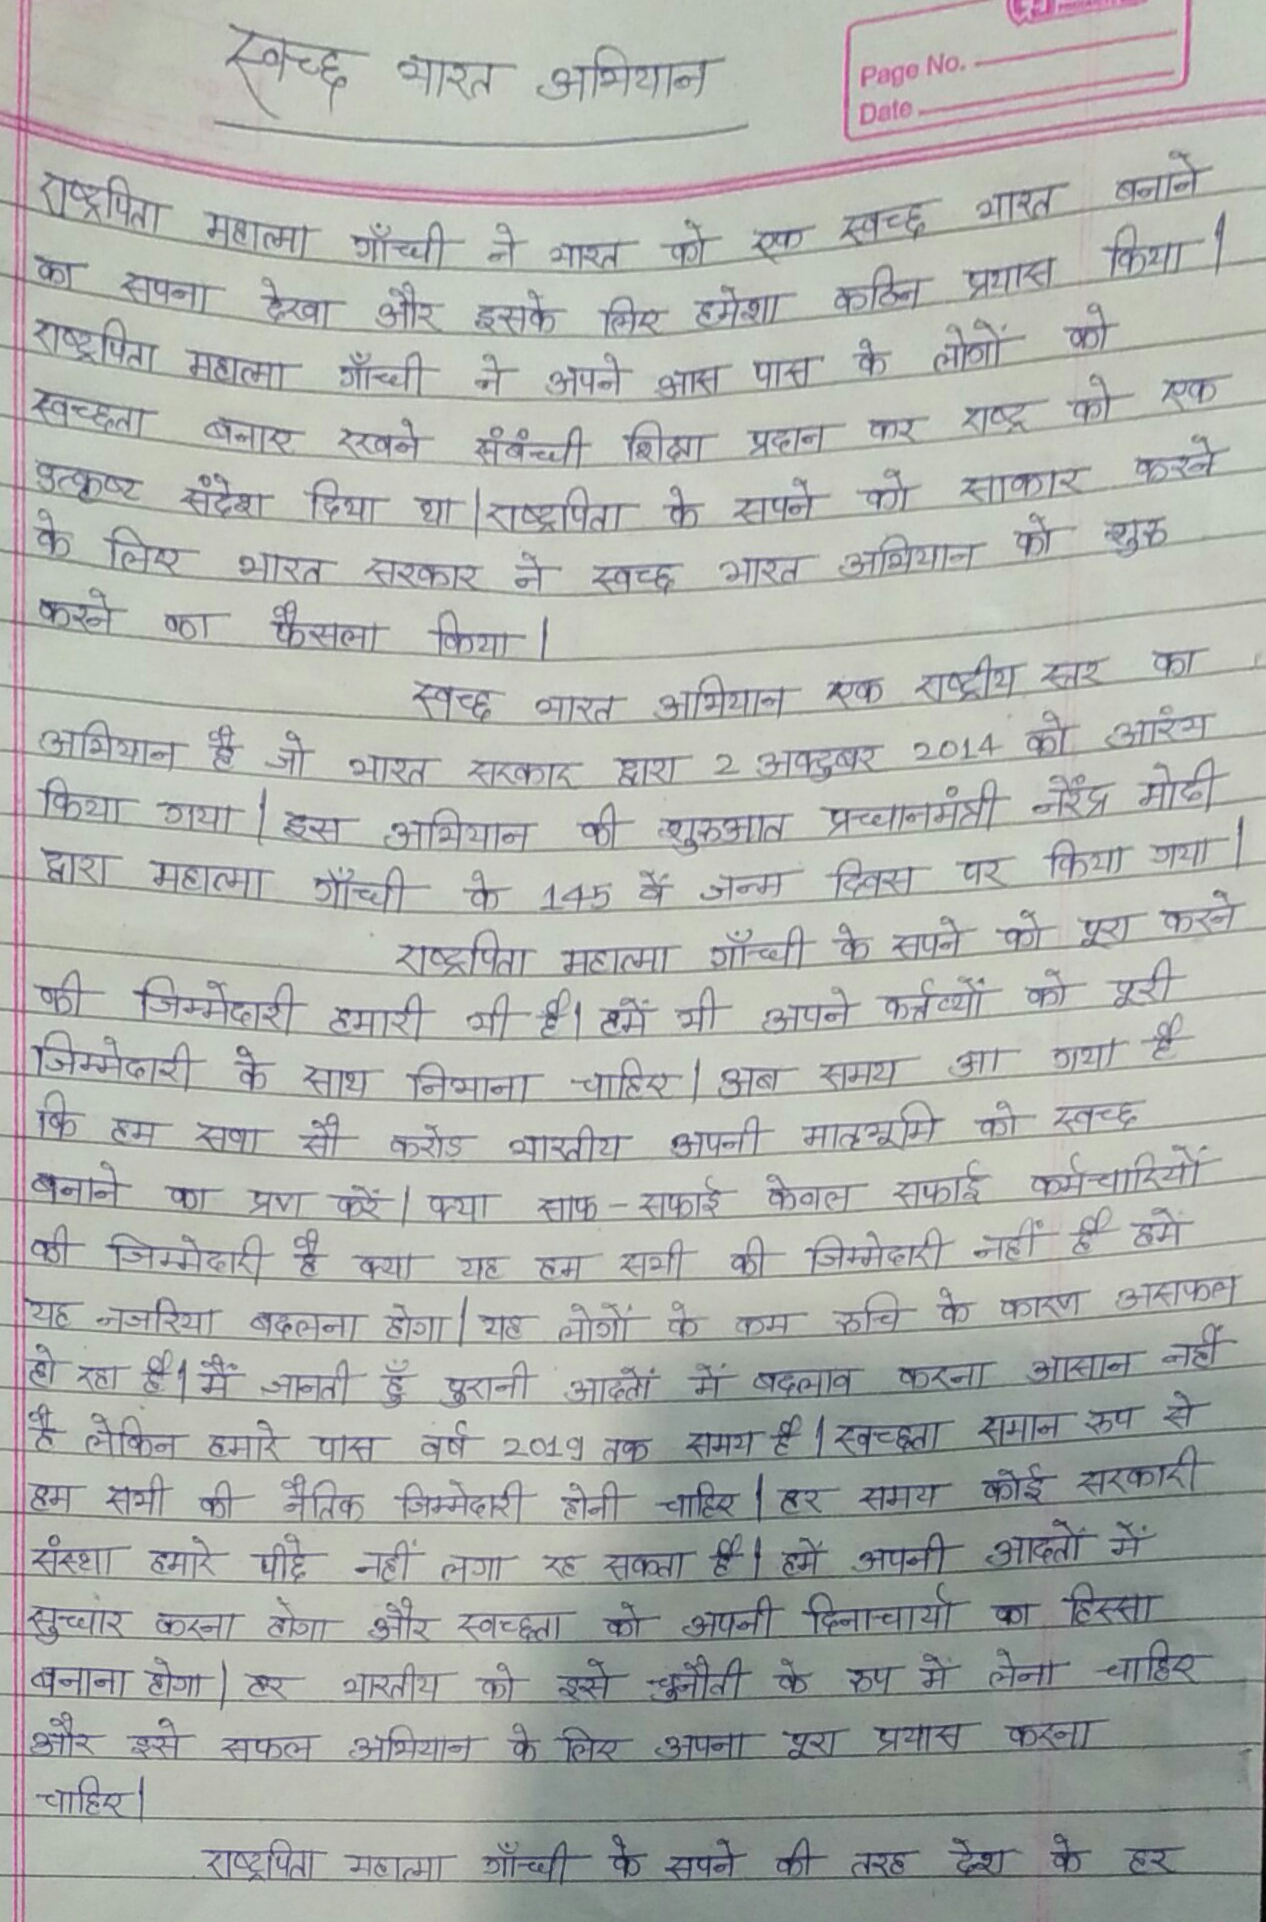 स्वच्छ भारत अभियान
Page No.
Date
राष्ट्रपिता महात्मा गाँधी ने भारत को एक स्वच्छ भारत बनाने
का सपना देखा और इसके लिए हमेशा कठिन प्रयास किया।
राष्ट्रपिता महात्मा गाँधी ने अपने आस पास के लोगों को
स्वच्छता बनाए रखने संबंधी शिक्षा प्रदान कर राष्ट्र को एक
उत्कृष्ट संदेश दिया था। राष्ट्रपिता के सपने को साकार करने
के लिए भारत सरकार ने स्वच्छ भारत अभियान को शुरू
करने का फैसला किया।
स्वच्छ भारत अभियान एक राष्ट्रीय स्तर का
अभियान है जो भारत सरकार द्वारा 2 अक्टुबर 2014 को आरंभ
किया गया। इस अभियान की शुरूआत प्रधानमंत्री नरेंद्र मोदी
द्वारा महात्मा गाँधी के 145 वें जन्म दिवस पर किया गया।
राष्ट्रपिता महात्मा गाँधी के सपने को पूरा करने
की जिम्मेदारी हमारी भी है। हमें भी अपने कर्त्तव्यों को पूरी
जिम्मेदारी के साथ निभाना चाहिए। अब समय आ गया है
कि हम सवा सौ करोड भारतीय अपनी मातृभूमि को स्वच्छ
बनाने का प्रण करें। क्या साफ-सफाई केवल सफाई कर्मचारियों
की जिम्मेदारी है क्या यह हम सभी की जिम्मेदारी नहीं है हमें
यह नजरिया बदलना होगा। यह लोगों के कम रूचि के कारण असफल
हो रहा है। मैं जानती हूँ पुरानी आदतों में बदलाव करना आसान नहीं
है लेकिन हमारे पास वर्ष 2019 तक समय है। स्वच्छता समान रूप से
हम सभी की नैतिक जिम्मेदारी होनी चाहिए। हर समय कोई सरकारी
संस्था हमारे पीछे नहीं लगा रह सकता है। हमें अपनी आदतों में
सुधार करना होगा और स्वच्छता को अपनी दिनाचार्या का हिस्सा
बनाना होगा। हर भारतीय को इसे चुनौती के रूप में लेना चाहिए
और इसे सफल अभियान के लिए अपना पूरा प्रयास करना
चाहिए।
राष्ट्रपिता महात्मा गाँधी के सपने की तरह देश के हर